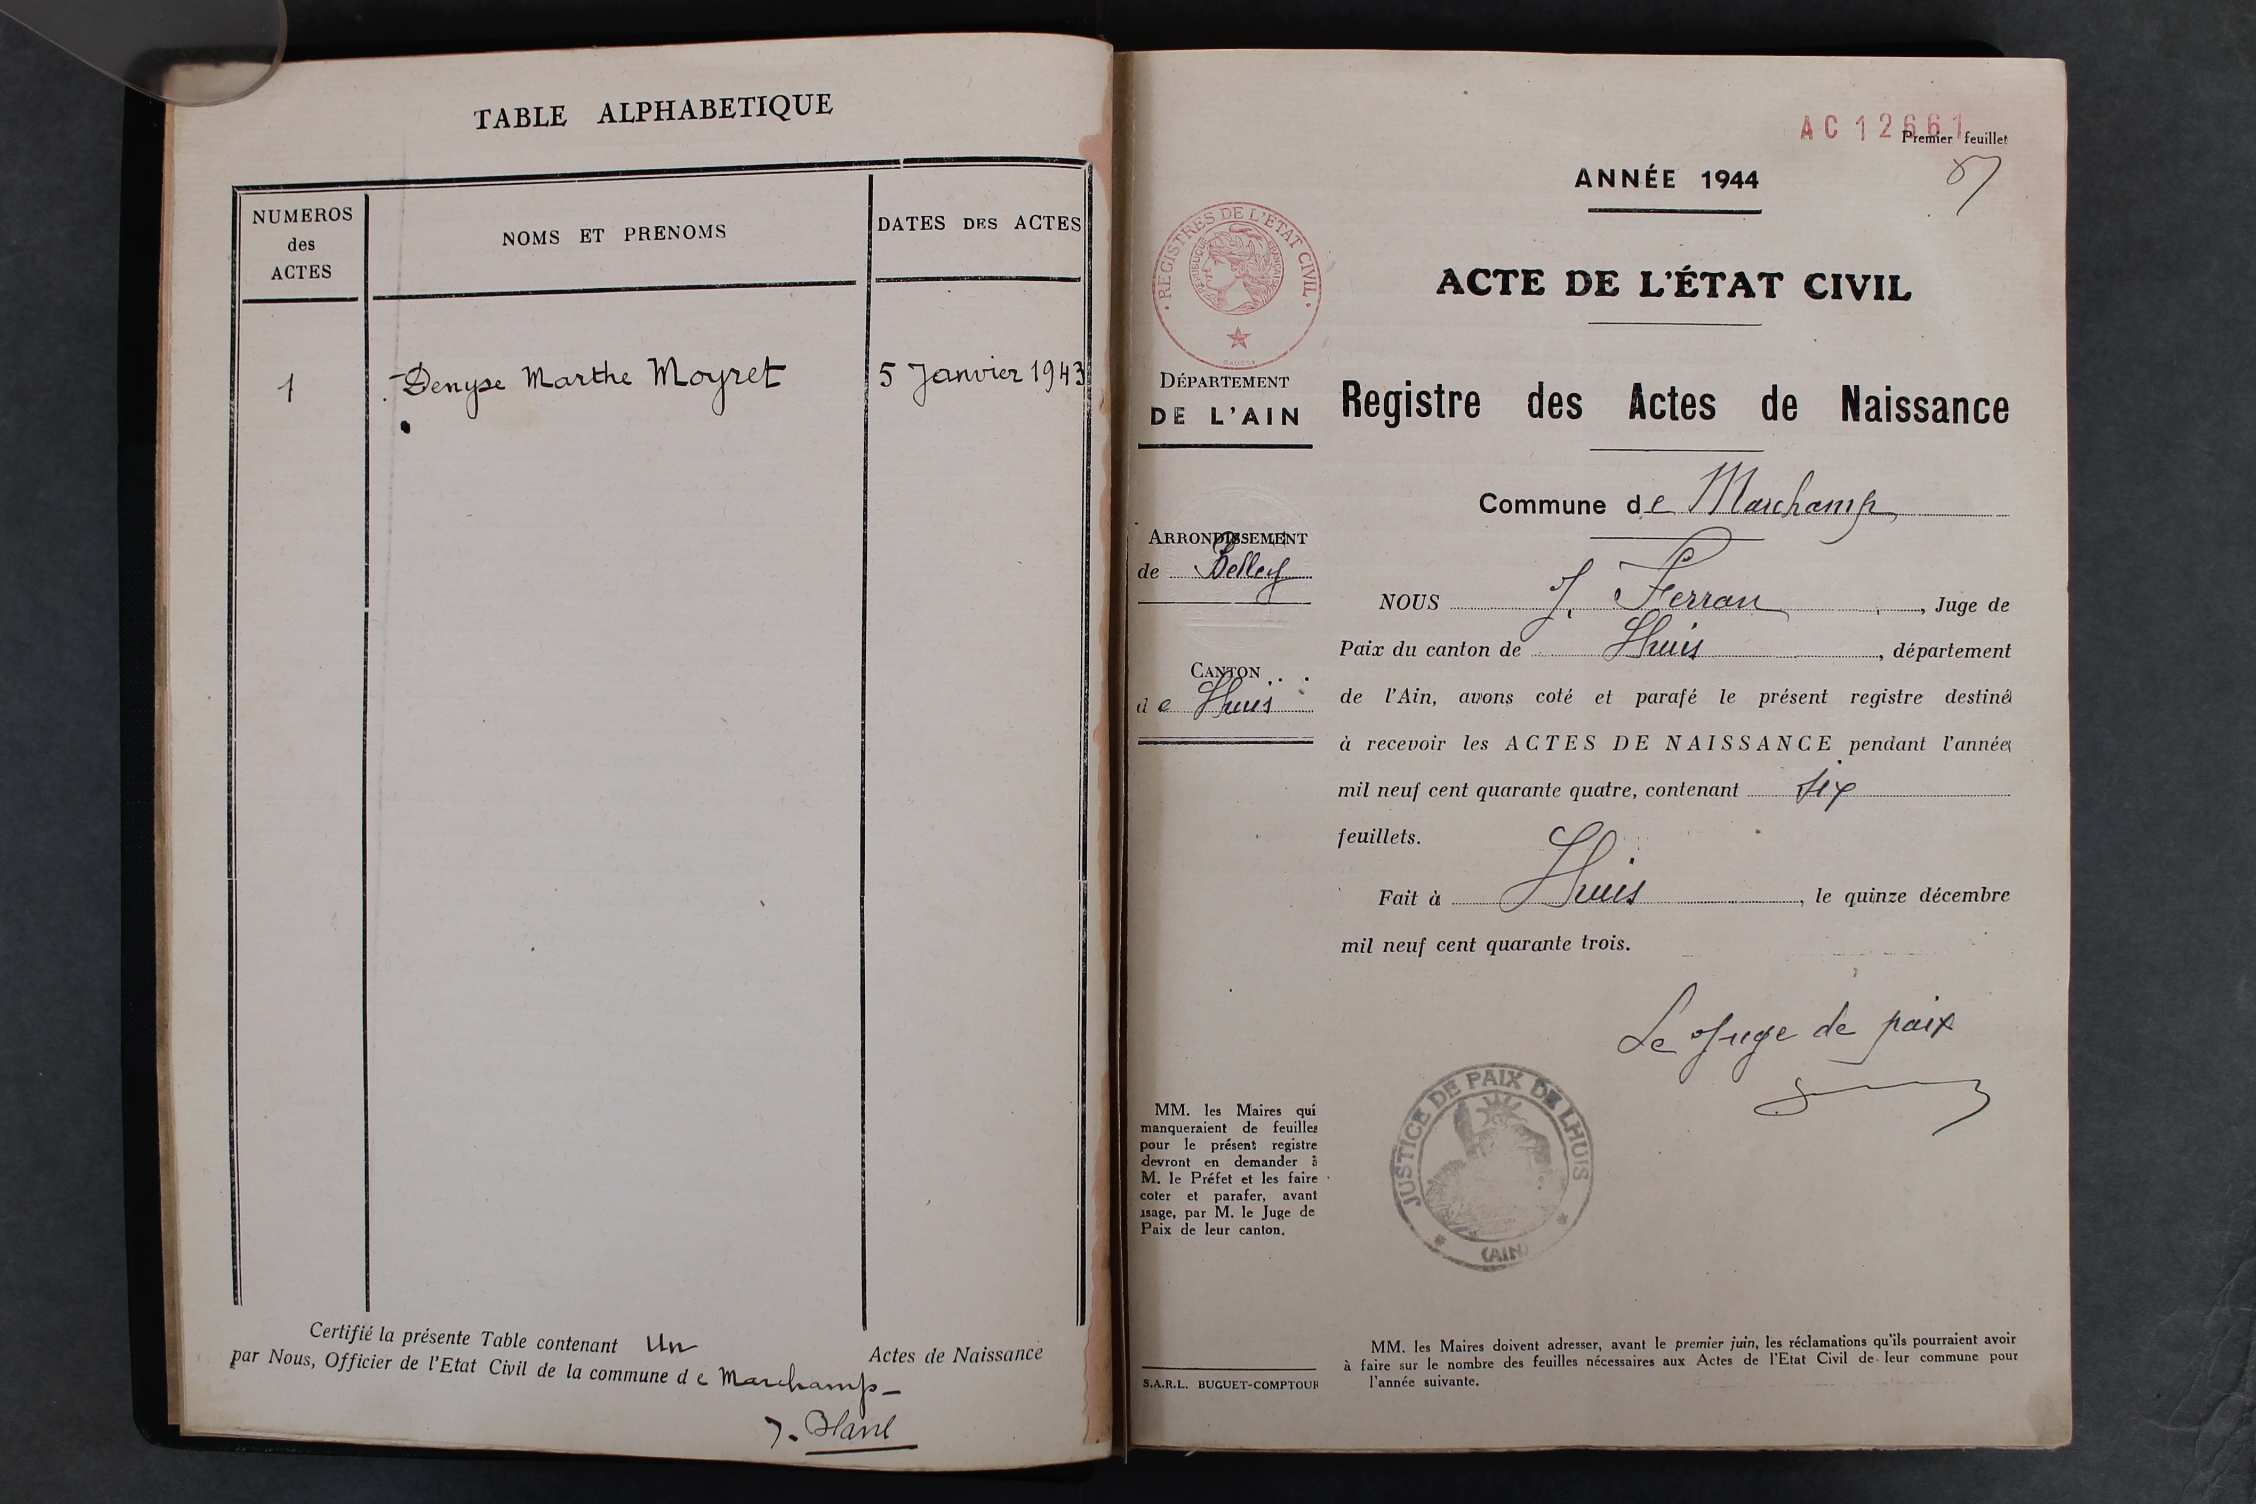 TABLE ALPHABETIQUE
NUMEROS
des
ACTES
NOMS ET PRENOMS
DATES DES ACTES
1
Denyse Marthe Moyret
5 Janvier 1943
Certifié la présente Table contenant Un Actes de Naissance
par Nous, Officier de l'Etat Civil de la commune de Marchamp
AC 12661
Premier feuillet
ANNÉE 1944
REGISTRES DE L'ÉTAT CIVIL
RÉPUBLIQUE FRANÇAISE
ACTE DE L'ÉTAT CIVIL
DÉPARTEMENT
DE L'AIN
Registre des Actes de Naissance
Commune de Marchamp
ARRONDISSEMENT
de Belley
CANTON
de Lhuis
NOUS J. Ferran, Juge de
Paix du canton de Lhuis, département
de l'Ain, avons coté et parafé le présent registre destiné
à recevoir les ACTES DE NAISSANCE pendant l'année
mil neuf cent quarante quatre, contenant six
feuillets.
Fait à Lhuis, le quinze décembre
mil neuf cent quarante trois.
Le Juge de paix
JUSTICE DE PAIX DE LHUIS
(AIN)
MM. les Maires qui
manqueraient de feuilles
pour le présent registre
devront en demander à
M. le Préfet et les faire
coter et parafer, avant
usage, par M. le Juge de
Paix de leur canton.
S.A.R.L. BUGUET-COMPTOUR
MM. les Maires doivent adresser, avant le premier juin, les réclamations qu'ils pourraient avoir
à faire sur le nombre des feuilles nécessaires aux Actes de l'Etat Civil de leur commune pour
l'année suivante.